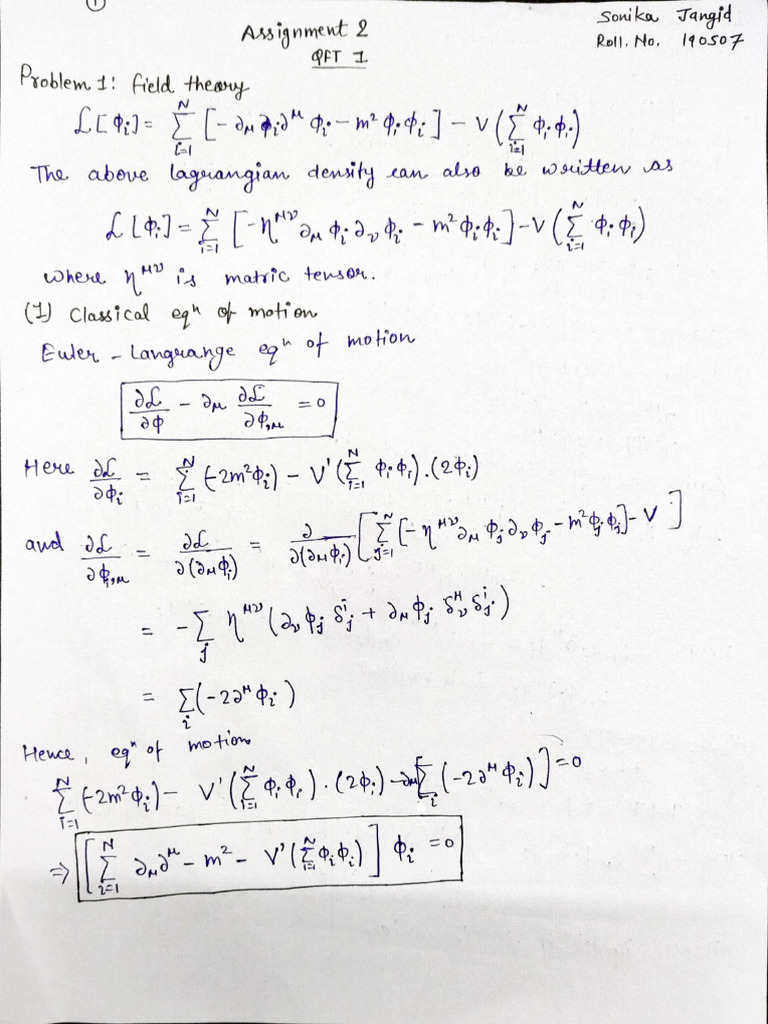 1
Sonika Jangid
Assignment 2
Roll. No. 190507
QFT 1
Problem 1: Field theory
ℒ[ϕᵢ] = Σ_{i=1}^{N} [-∂_μ ϕᵢ ∂^μ ϕᵢ - m² ϕᵢ ϕᵢ] - V(Σ_{i=1}^{N} ϕᵢ ϕᵢ)
The above lagrangian density can also be written as
ℒ[ϕᵢ] = Σ_{i=1}^{N} [-η^{μν} ∂_μ ϕᵢ ∂_ν ϕᵢ - m² ϕᵢ ϕᵢ] - V(Σ_{i=1}^{N} ϕᵢ ϕᵢ)
where η^{μν} is matric tensor.
(1) Classical eqⁿ of motion
Euler - Langrange eqⁿ of motion
∂ℒ/∂ϕ - ∂_μ ∂ℒ/∂ϕ,_μ = 0
Here ∂ℒ/∂ϕᵢ = Σ_{i=1}^{N} (-2m²ϕᵢ) - V'(Σ_{i=1}^{N} ϕᵢ ϕᵢ).(2ϕᵢ)
and ∂ℒ/∂ϕ_{i,μ} = ∂ℒ/∂(∂_μ ϕᵢ) = ∂/∂(∂_μ ϕᵢ) [Σ_{j=1}^{N} [-η^{μν} ∂_μ ϕⱼ ∂_ν ϕⱼ - m² ϕⱼ ϕⱼ] - V]
= -Σ_j η^{μν} (∂_ν ϕⱼ δ^i_j + ∂_μ ϕⱼ δ^μ_ν δ^i_j)
= Σ_i (-2∂^μ ϕᵢ)
Hence, eqⁿ of motion
Σ_{i=1}^{N} (-2m²ϕᵢ) - V'(Σ_{i=1}^{N} ϕᵢ ϕᵢ) . (2ϕᵢ) - ∂_μ[Σ_i (-2∂^μ ϕᵢ)] = 0
⇒ [Σ_{i=1}^{N} ∂_μ ∂^μ - m² - V'(Σ_{i=1}^{N} ϕᵢ ϕᵢ)] ϕᵢ = 0